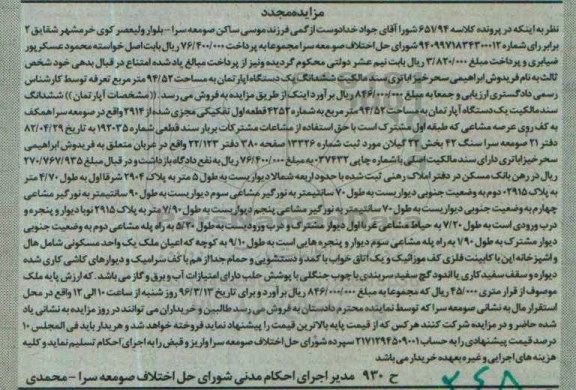 مزایده مجدد
نظر به اینکه در پرونده کلاسه ۶۵۷/۹۴ شورا آقای جواد خدادوست ازگمی فرزند موسی ساکن صومعه سرا - بلوار ولیعصر کوی خرمشهر شقایق ۲
برابر رای شماره ۹۴۰۹۹۷۱۸۴۳۴۰۰۰۱۲ شورای حل اختلاف صومعه سرا مجموعا به پرداخت ۷۶/۴۰۰/۰۰۰ ریال بابت اصل خواسته محمود عسکرپور
ضیابری و پرداخت مبلغ ۳/۸۲۰/۰۰۰ ریال بابت نیم عشر دولتی محکوم گردیده و نیز از پرداخت مبالغ یاد شده امتناع در قبال بدهی خود شخص
ثالث به نام فریدوش ابراهیمی سحرخیز اباتری سند مالکیت ششدانگ یک دستگاه آپارتمان به مساحت ۹۴/۵۲ متر مربع تعرفه توسط کارشناس
رسمی دادگستری ارزیابی و جمعا به مبلغ ۸۴۶/۰۰۰/۰۰۰ ریال برآورد اینک از طریق مزایده به فروش می رسد. ((مشخصات آپارتمان)) ششدانگ
سند مالکیت یک دستگاه آپارتمان به مساحت ۹۴/۵۲ متر مربع به شماره ۴۲۵۲ قطعه اول تفکیکی مجزی شده از ۲۹۱۴ واقع در صومعه سرا همکف
به کف روی عرصه مشاعی که طبقه اول مشترک است با حق استفاده از مشاعات مشترکات برابر سند قطعی شماره ۱۹۲۰۳۵ به تاریخ ۸۲/۰۴/۲۹
دفتر ۲۱ صومعه سرا سنگ ۴۲ بخش ۲۲ گیلان مورد ثبت شماره ۱۳۳۲۶ صفحه ۳۸۰ دفتر ۲۲/۱۲۳ واقع در غربان متعلق به فریدوش ابراهیمی
سحرخیز اباتری دارای سند مالکیت اصلی با شماره چاپی ۰۳۷۴۳۲ به مبلغ ۷۶/۴۰۰/۰۰۰ ریال به نفع دادگاه بازداشت و در قبال مبلغ ۲۷۰/۷۶۷/۹۳۵
ریال در رهن بانک مسکن در دفتر املاک رهنی ثبت شده با حدود اربعه شمالا دیواریست به طول ۵ متر به پلاک ۲۹۰۴ شرقا اول به طول ۴/۷۰ متر
به پلاک ۲۹۱۵ دوم به وضعیت جنوبی دیواریست به طول ۷۰ سانتیمتر به نورگیر مشاعی سوم دیواریست به طول ۹۰ سانتیمتر به نورگیر مشاعی
چهارم به وضعیت جنوبی دیواریست به طول ۷۰ سانتیمتر به نورگیر مشاعی پنجم دیواریست به طول ۷/۹۰ متر به پلاک ۲۹۱۵ نوبا دیوار و پنجره و
درب ورودی است به طول ۷/۲۰ به حیاط مشاعی غربا اول دیوار مشترک و درب ورودیست به طول ۵/۳۰ به راه پله مشاعی دوم به وضعیت جنوبی
دیوار مشترک به طول ۷/۹۰ به راه پله مشاعی سوم دیوار و پنجره هایی است به طول ۹/۱۰ به کوچه که اعیان ملک یک واحد مسکونی شامل هال
و آشپزخانه اپن با کابینت فلزی کف موزائیک و یک اتاق خواب با کمد و دستشویی و حمام جدا از هم با کف سرامیک و دیوارهای کاشی کاری شده
دیواره و سقف سفید کاری با اندود گچ سفید سربندی با چوب جنگلی با پوشش حلب دارای امتیازات آب و برق و گاز می باشد. که ارزش پایه ملک
موصوف از قرار متری ۴۵/۰۰۰ ریال که مجموعا به مبلغ ۸۴۶/۰۰۰/۰۰۰ ریال برآورد و برای تاریخ ۹۶/۳/۱۳ روز شنبه از ساعت ۱۰ الی ۱۲ واقع در محل
استقرار مال به نشانی صومعه سرا که توسط نماینده محترم دادستان به فروش می رسد طالبین و خریداران می توانند در روز مزایده به نشانی یاد
شده حاضر و در مزایده شرکت کنند هر کس که از قیمت پایه بالاترین قیمت را پیشنهاد نماید فروخته خواهد شد و خریدار باید فی المجلس ۱۰
درصد قیمت پیشنهادی را به حساب ۲۱۷۱۲۹۴۵۰۹۰۰۱ سپرده شورای حل اختلاف صومعه سرا واریز و قبض را به اجرای احکام تسلیم نماید و کلیه
هزینه های اجرایی و غیره به عهده خریدار می باشد
ح ۹۳۰ مدیر اجرای احکام مدنی شورای حل اختلاف صومعه سرا - محمدی